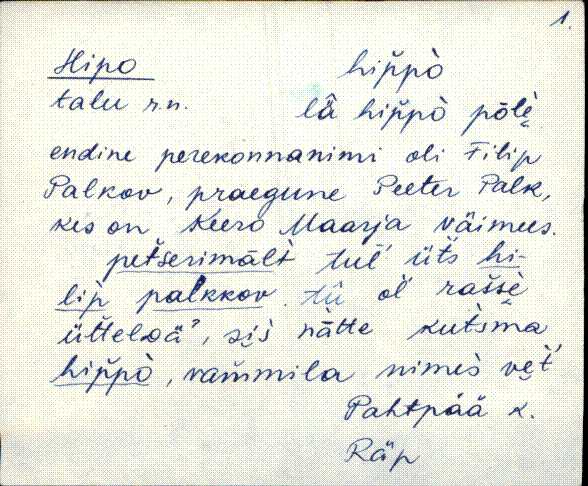 1.
Hipo hip̆pò
talu r.n. lǟ hip̆pò pōlè̬
endine perekonnanimi oli Filip
Palkov, praegune Peeter Palk,
kes on Keero Maarja väimees.
petserimālt̀ tuĺ üt̆s hi-
lip̀ palkkov. tū oĺ rašsè̬
üttelдä', si̬i̬s nätte kut̀sma
hip̆pò, vam̆mila nimès ve̬t̆
Pahtpää k.
Räp